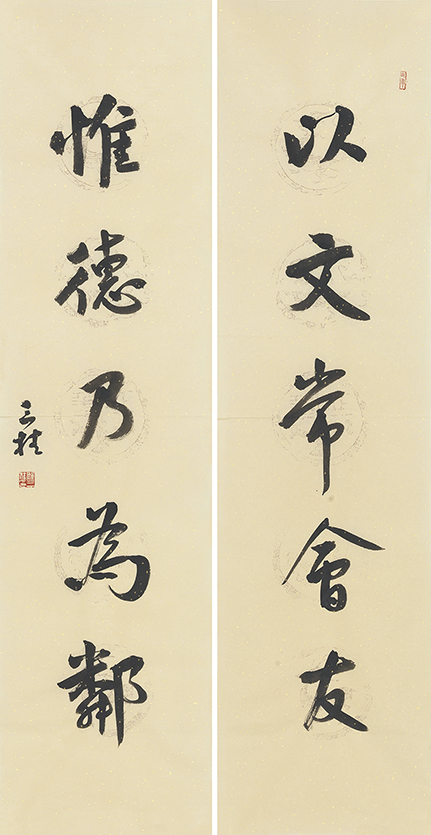 以文常會友
惟德乃為鄰
三桂